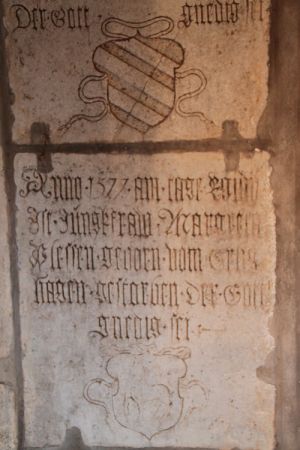 Der Gott gnedig sei
Anno 1577 am tage
Ist Jungkfraw Margreta
Plessen geborn vom
hagen gestorben Der Gott
gnedig sei